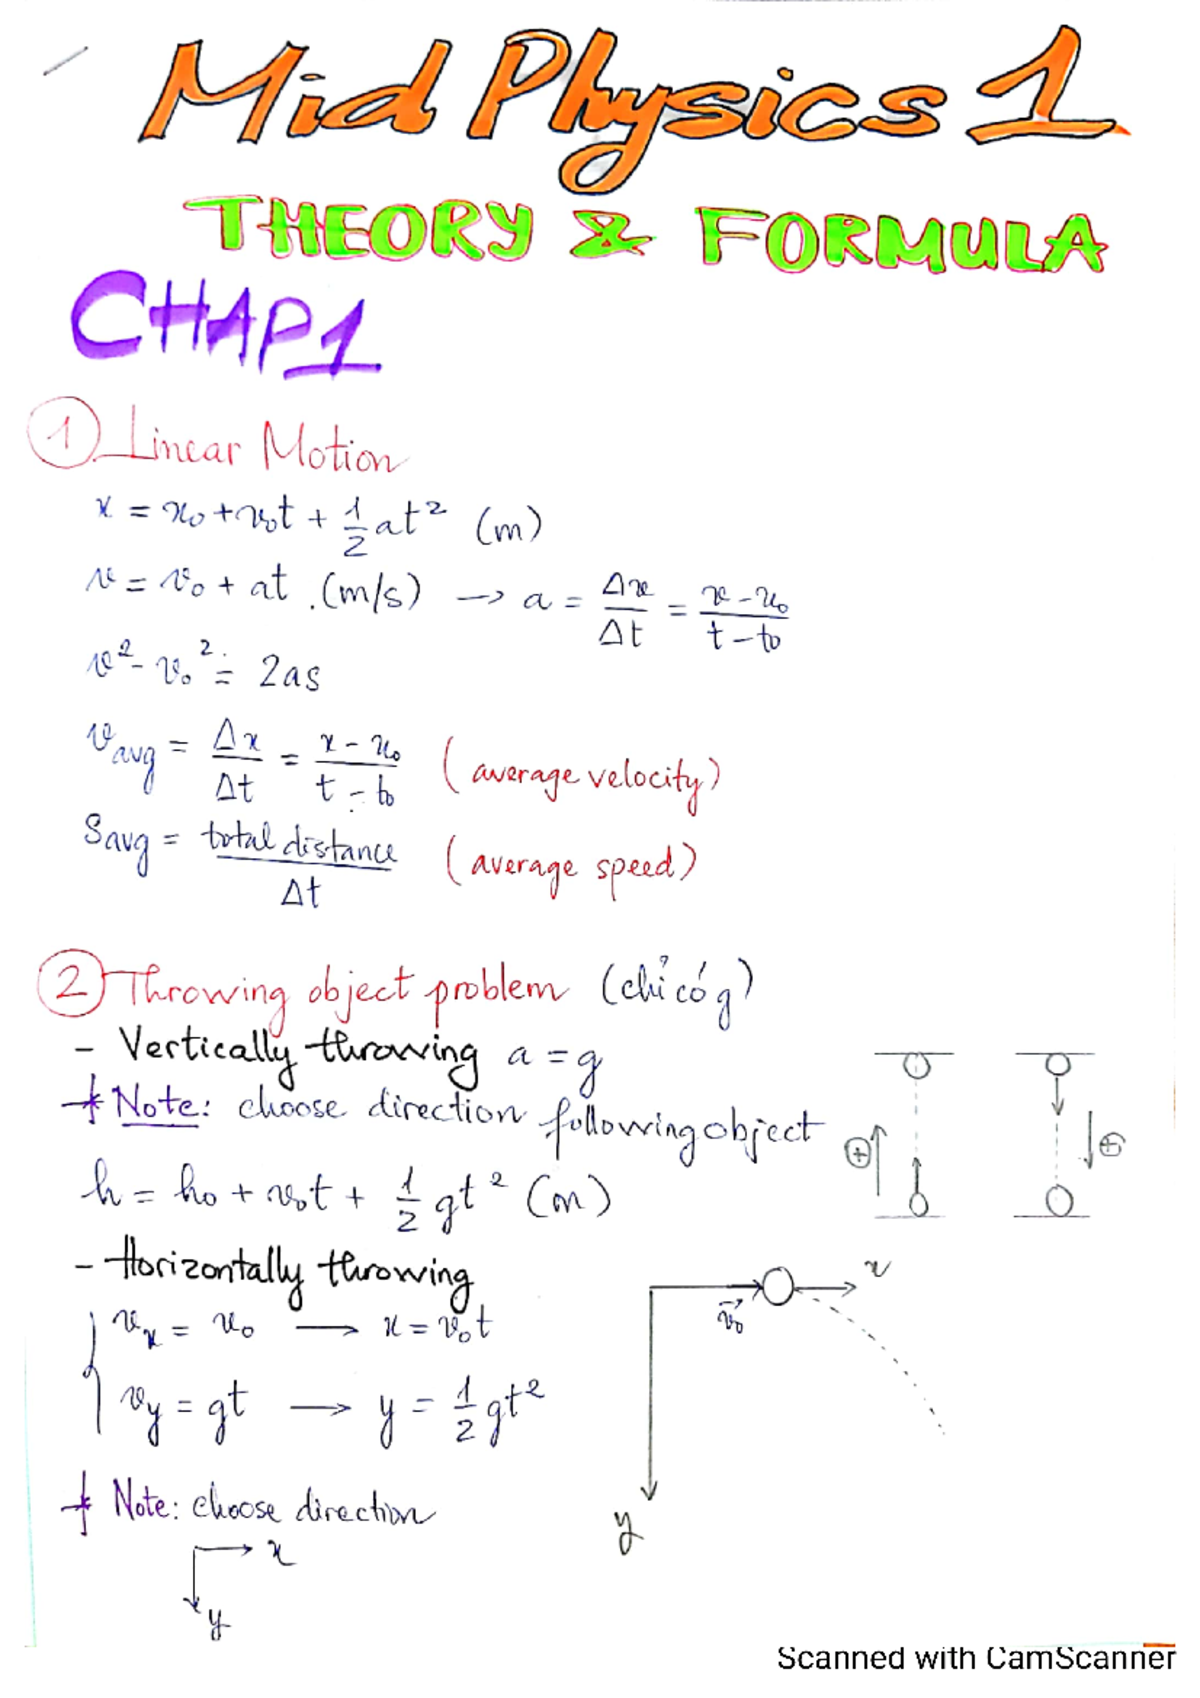 Mid Physics 1
THEORY & FORMULA
CHAP1
① Linear Motion
x = x₀ + v₀t + 1/2 at² (m)
v = v₀ + at . (m/s) → a = Δv/Δt = v - v₀/t - t₀
v² - v₀² = 2as
v avg = Δx/Δt = x - x₀/t - t₀ (average velocity)
S avg = total distance/Δt (average speed)
② Throwing object problem (chỉ có g)
- Vertically throwing a = g
* Note: choose direction following object
h = h₀ + v₀t + 1/2 gt² (m)
⊕ ⊕
- Horizontally throwing
vₓ = v₀ → x = v₀t
v⃗₀ x
v_y = gt → y = 1/2 gt²
* Note: choose direction
y
x
y
Scanned with CamScanner